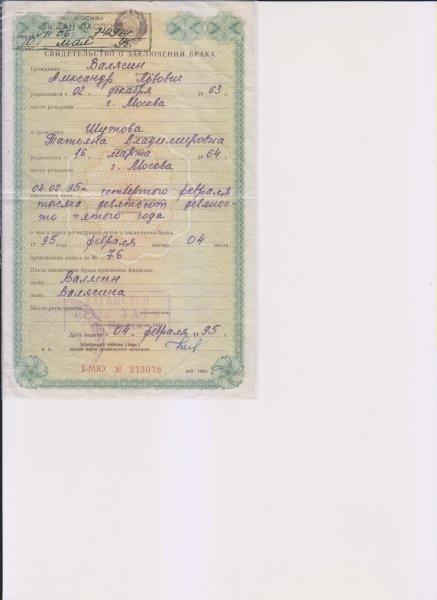 гор. МОСКВА
ВЫДАН ПАСПОРТ
мая 95
СВИДЕТЕЛЬСТВО О ЗАКЛЮЧЕНИИ БРАКА
Гражданин Валясин
Александр Львович
родившийся « 02 » декабря 1963
место рождения г. Москва
и гражданка Шутова
Татьяна Владимировна
родившаяся « 16 » марта 1964
место рождения г. Москва
04.02.95г. четвертого февраля
заключили брак
тысяча девятьсот девянос-
то пятого года
о чем в книге регистрации актов о заключении брака
1995 года февраля месяца 04 числа
произведена запись за № 76
После заключения брака присвоены фамилии:
мужу Валясин
жене Валясина
Место регистрации
Дата выдачи « 04 » февраля 1995 г.
М. П.
I-МЮ № 273078